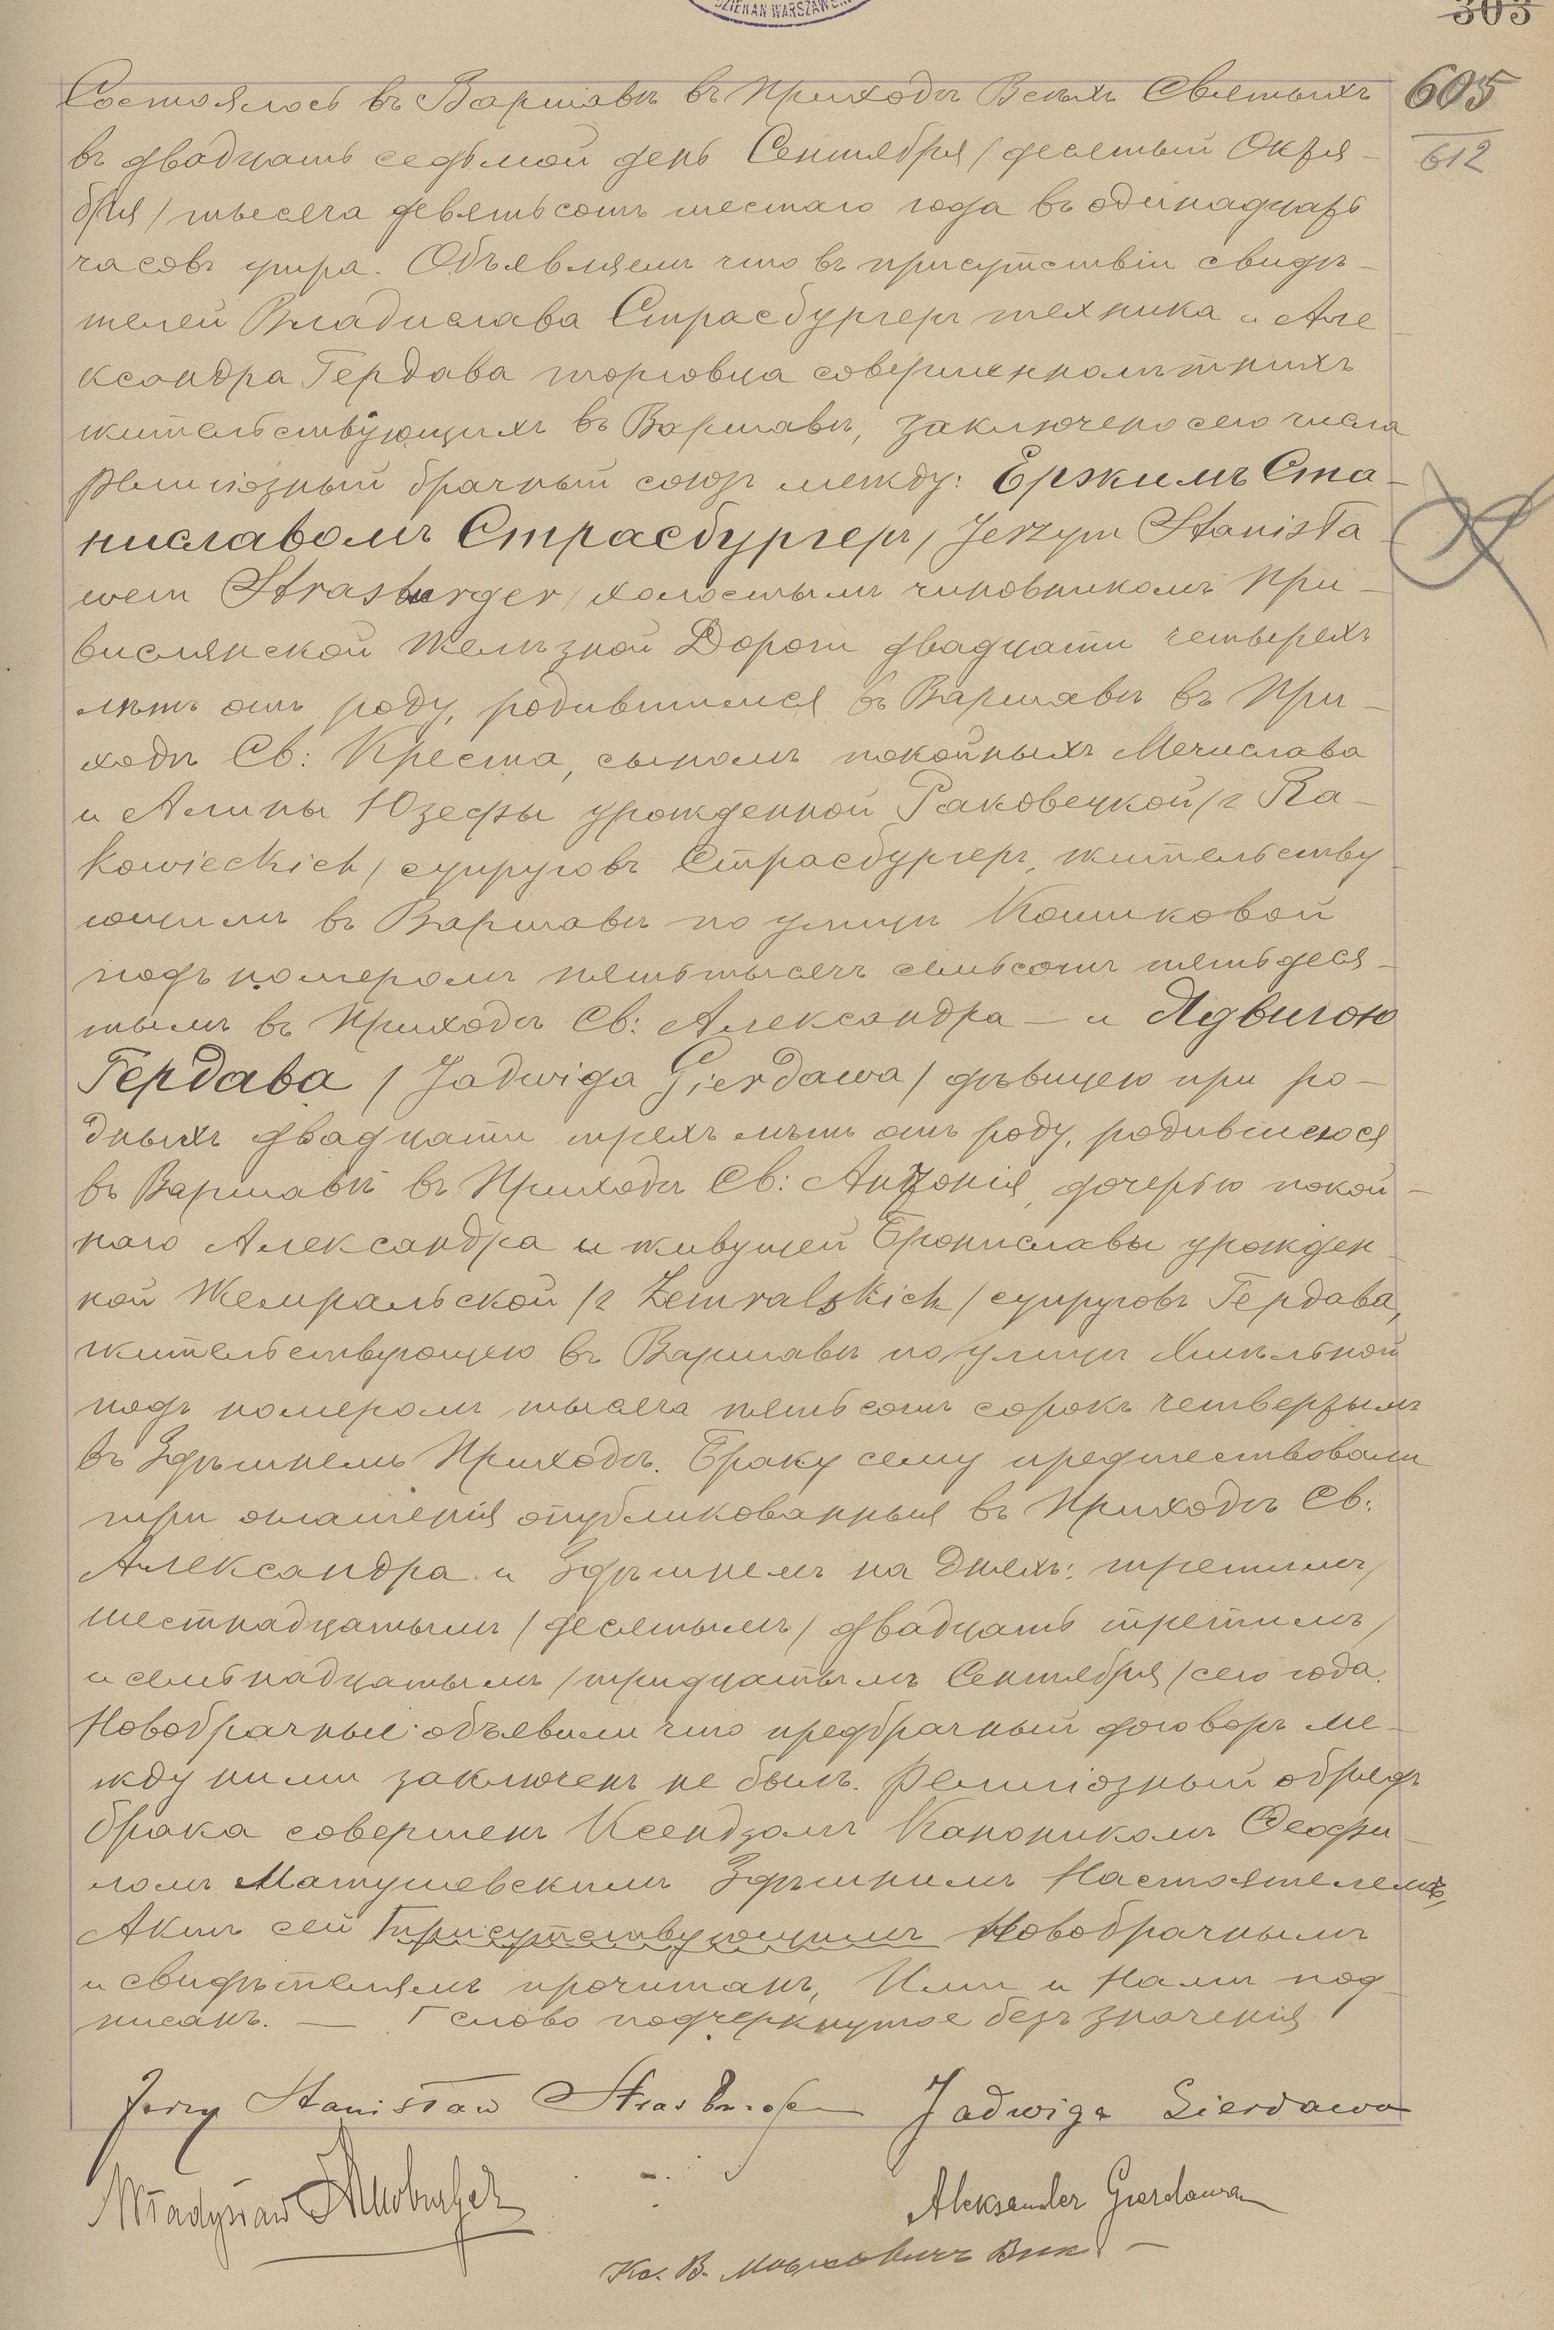 DZIEKAN WARSZAWSKI
303
605
612
Состоялось въ Варшавѣ въ Приходѣ Всѣхъ Святыхъ
въ двадцать седьмой день Сентября /десятый Октя-
бря/ тысяча девятьсотъ шестаго года въ одинадцать
часовъ утра. Объявляемъ что въ присутствіи свидѣ-
телей Владислава Страсбургеръ техника и Але
ксандра Гердава торговца совершеннолѣтнихъ
жительствующихъ въ Варшавѣ, заключено сего числа
религіозный брачный союзъ между: Ержимъ Ста-
ниславомъ Страсбургеръ /Jerzym Stanisła
wem Strasburger/ холостымъ чиновникомъ При-
вислянской Желѣзной Дороги двадцати четырехъ
лѣтъ отъ роду, родившимся въ Варшавѣ въ При-
ходѣ Св: Креста, сыномъ покойныхъ Мечислава
и Алины Юзефы урожденной Раковецкой /z Ra-
kowieckich/ супруговъ Страсбургеръ, жительству
ющимъ въ Варшавѣ по улицѣ Кошиковой
подъ номеромъ пятьтысячъ семьсотъ пятьдеся-
тымъ въ Приходѣ Св: Александра — и Ядвигою
Гердава /Jadwiga Gierdawa/ дѣвицею при ро-
дныхъ двадцати трехъ лѣтъ отъ роду, родившеюся
въ Варшавѣ въ Приходѣ Св: Антонія, дочерью покой-
наго Александра и живущей Брониславы урожден
ной Жемральской /z Żemralskich/ супруговъ Гердава,
жительствующею въ Варшавѣ по улицѣ Хмѣльной
подъ номеромъ тысяча пятьсотъ сорокъ четвертымъ
въ Здѣшнемъ Приходѣ. Браку сему предшествовали
три оглашенія опубликованныя въ Приходѣ Св:
Александра и Здѣшнемъ на Дняхъ: третьимъ/
шестнадцатымъ/ десятымъ/ двадцать третимъ/
и семьнадцатымъ /тридцатымъ Сентября/ сего года.
Новобрачные объявили что предбрачный договоръ ме-
жду ними заключенъ не былъ. Религіозный обрядъ
брака совершенъ Ксендзомъ Каноникомъ Ѳеофи
ломъ Матушевскимъ Здѣшнимъ Настоятелемъ,
Актъ сей Г присутствующимъ Новобрачнымъ
и свидѣтелямъ прочитанъ, Ими и Нами под-
писанъ. — Г слово подчеркнутое безъ значенія
Jerzy Stanisław Strasburger Jadwiga Gierdawa
Władysław Strasburger Aleksander Gierdawa
Кс. В. Вик. —